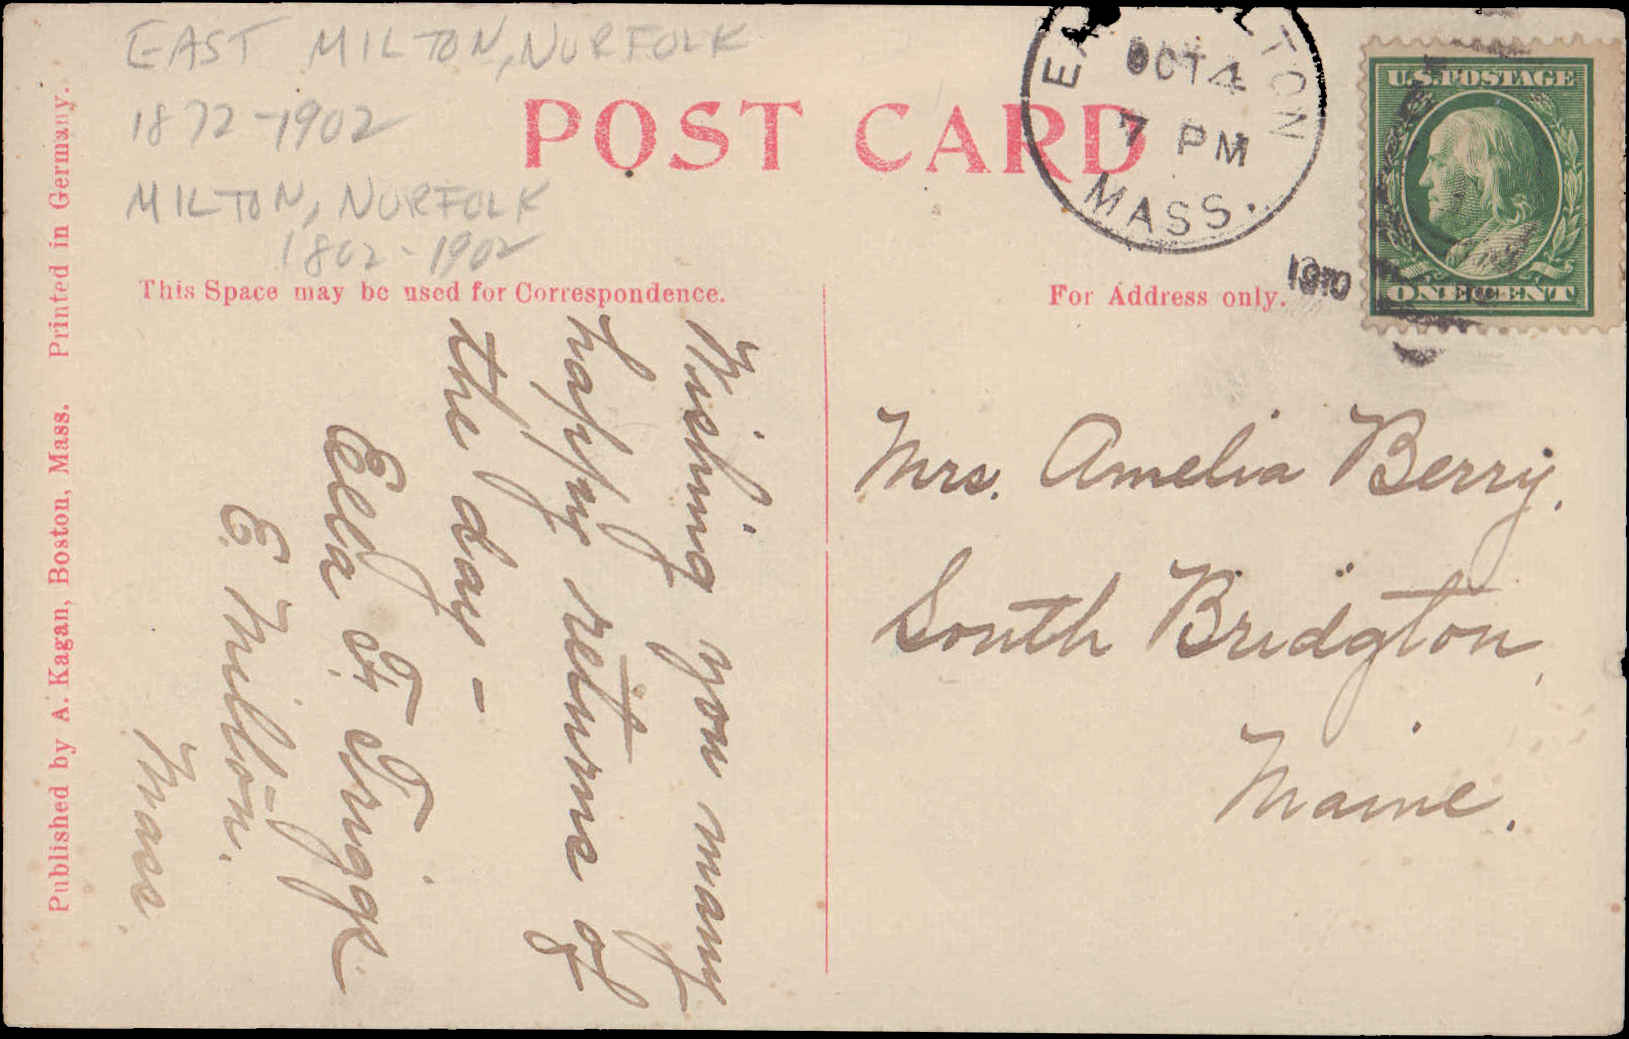 EAST MILTON, NORFOLK
1872-1902
MILTON, NORFOLK
1802-1902
POST CARD
EAST MILTON
OCT 4
7 PM
MASS.
1910
U.S. POSTAGE
ONE CENT
This Space may be used for Correspondence.
For Address only.
Wishing you many
happy returns of
the day -
Ella F. F.
E. Milton.
Mass
Mrs. Amelia Berry.
South Bridgton,
Maine.
Published by A. Kagan, Boston, Mass. Printed in Germany.